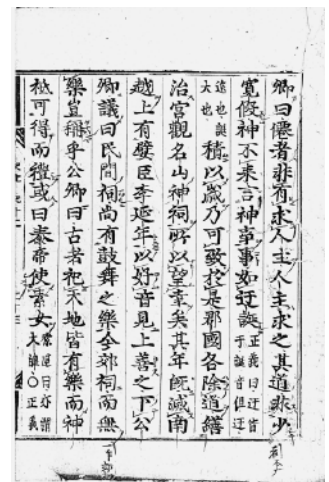 卿曰僊者非有求人主人主求之其道非少
寛假神不来言神亊事如迂誕正義曰迂音于誕音但迂
遠也誕大也積以歳乃可致於是郡國各除道繕
治宮觀名山神祠所以望幸矣其年既滅南
越上有嬖臣李延年以好音見上善之下公
卿議曰民間祠尚有鼓舞之樂今郊祠而無
樂豈稱乎公卿曰古者祀天地皆有樂而神
祇可得而禮或曰泰帝使素女索隱曰亦謂太譁○正義